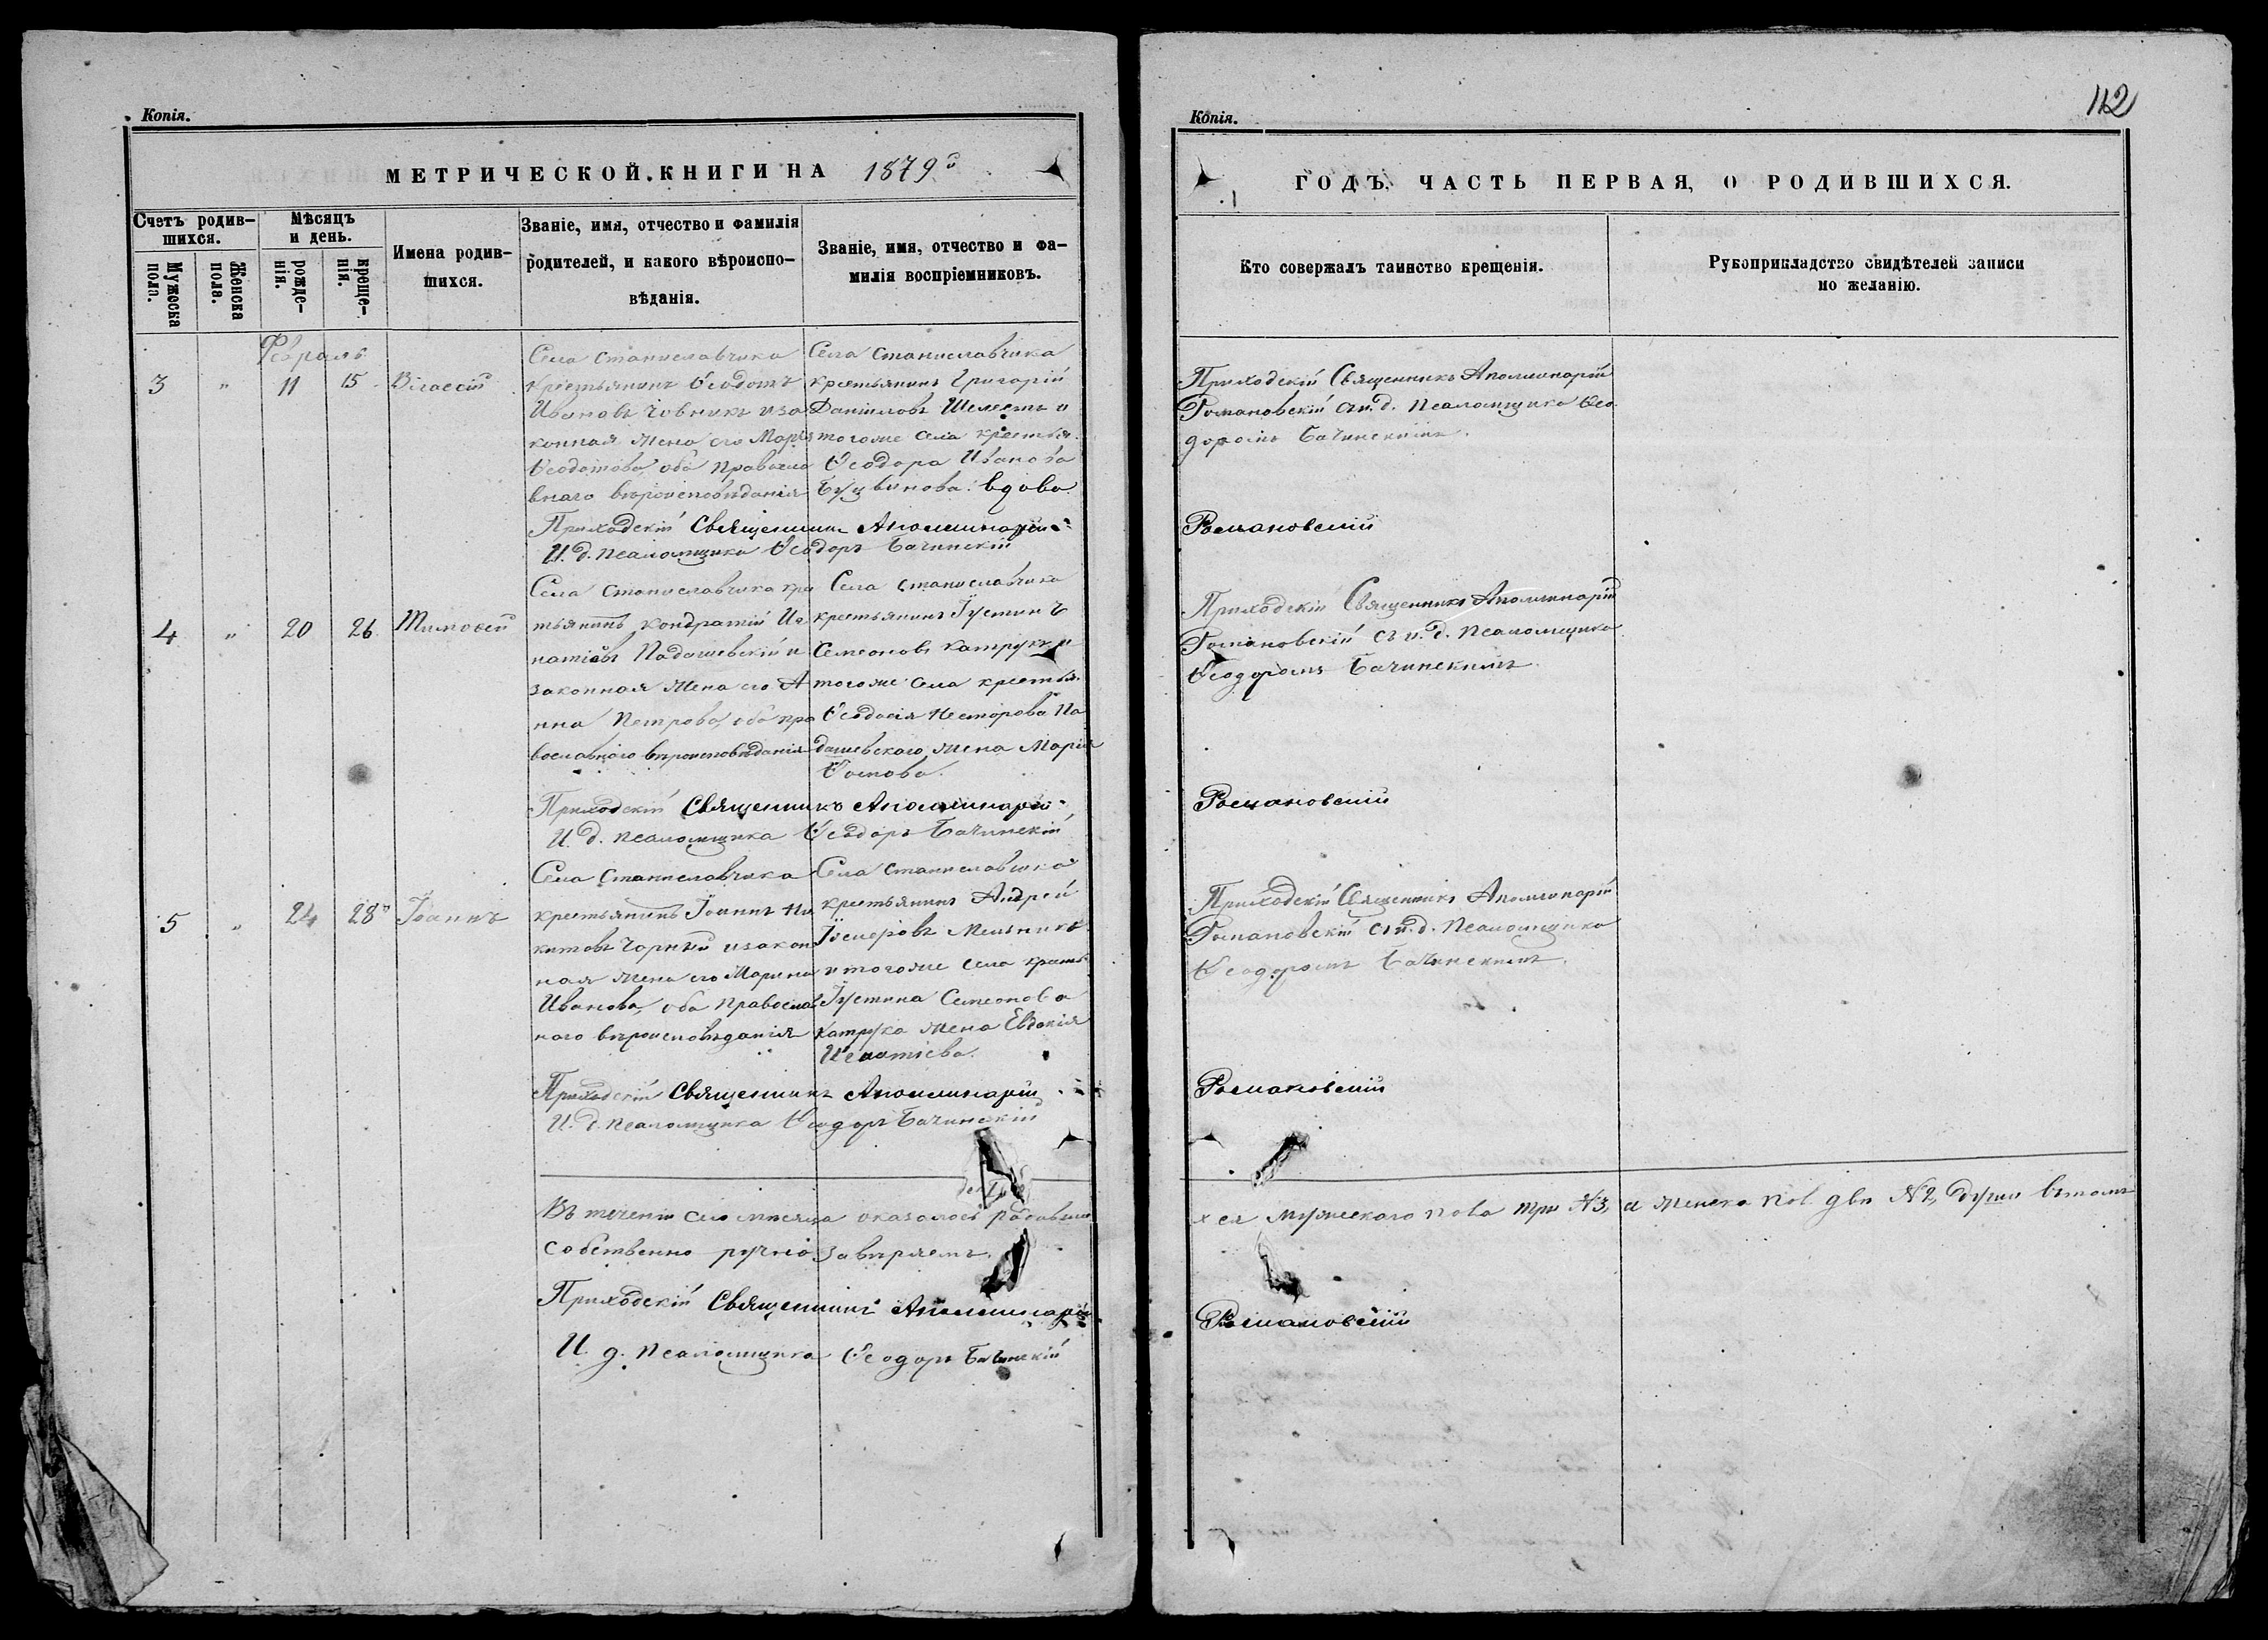 Копія.
МЕТРИЧЕСКОЙ КНИГИ НА 1879й
Счетъ родив-
шихся.
Мѣсяцъ
и день.
Мужеска
пола.
Женска
пола.
рожде-
нія.
креще-
нія.
Имена родив-
шихся.
Званіе, имя, отчество и фамилія
родителей, и какого вѣроиспо-
вѣданія.
Званіе, имя, отчество и фа-
милія воспріемниковъ.
Февраль
3 " 11 15 Власій
Села Станиславчика
крестьянинъ Ѳеодотъ
Ивановъ Човникъ и за
конная жена его Марія
Ѳеодотова, оба Правосла
внаго вѣроисповѣданія
Села Станиславчика
крестьянинъ Григорій
Даніиловъ Шелестъ и
тогоже села крестья.
Ѳеодора Иванова
вдова
Приходскій Священникъ Аполлинарій
И. д. Псаломщика Ѳеодоръ Бачинскій
4 " 20 26 Тимоѳей
Села Станиславчика кре
тьянинъ Кондратій Иг
натіевъ Подашевскій и
законная жена его А
нна Петрова, оба пра
вославнаго вѣроисповѣданія
Села Станиславчика
крестьянинъ Іустинъ
Семеоновъ Катрукъ и
тогоже села крестья.
Ѳеодосія Несторова По
дашевскаго жена Марія
Приходскій Священникъ Аполлинарій
И. д. Псаломщика Ѳеодоръ Бачинскій
5 " 24 28 Іоаннъ
Села Станиславчика
крестьянинъ Іоаннъ Ни
китовъ Чорный и закон
ная жена его Марина
Иванова, оба Православ
наго вѣроисповѣданія
Села Станиславчика
крестьянинъ Андрей
Мельникъ
и тогоже села крест.
Іустина Семеонова
Катрука жена Евдокія
Игнатіева.
Приходскій Священникъ Аполлинарій
И. д. Псаломщика Ѳеодоръ Бачинскій
Въ теченіи сего мѣсяца оказалось родивши
собственно ручно завѣряемъ.
Приходскій Священникъ Аполлинарій
И. д. Псаломщика Ѳеодоръ Бачинскій
112
Копія.
ГОДЪ, ЧАСТЬ ПЕРВАЯ, О РОДИВШИХСЯ.
Кто совершалъ таинство крещенія.
Рукоприкладство свидѣтелей записи
по желанію.
Приходскій Священникъ Аполлинарій
Романовскій съ и. д. Псаломщика Ѳео
доромъ Бачинскимъ.
Романовскій
Приходскій Священникъ Аполлинарій
Романовскій съ и. д. Псаломщика
Ѳеодоромъ Бачинскимъ.
Романовскій
Приходскій Священникъ Аполлинарій
Романовскій съ и. д. Псаломщика
Ѳеодоромъ Бачинскимъ.
Романовскій
хся мужескаго пола три №3, а женска пол двѣ №2, въ томъ
Романовскій